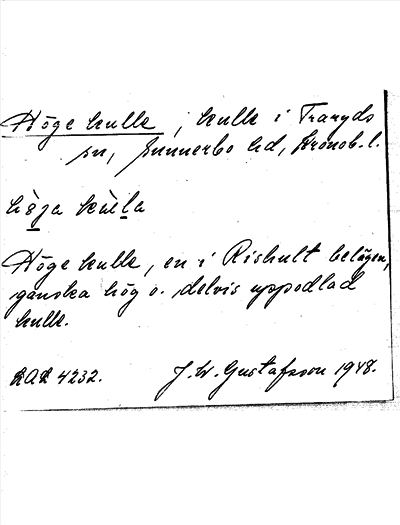 Höge kulle, kulle i Traryds
sn, Sunnerbo hd, Kronob. l.
hö̱ja kùḻa
Höge kulle, en i Rishult belägen,
ganska hög o. delvis uppodlad
kulle.
4232.
J. W. Gustafsson 1948.